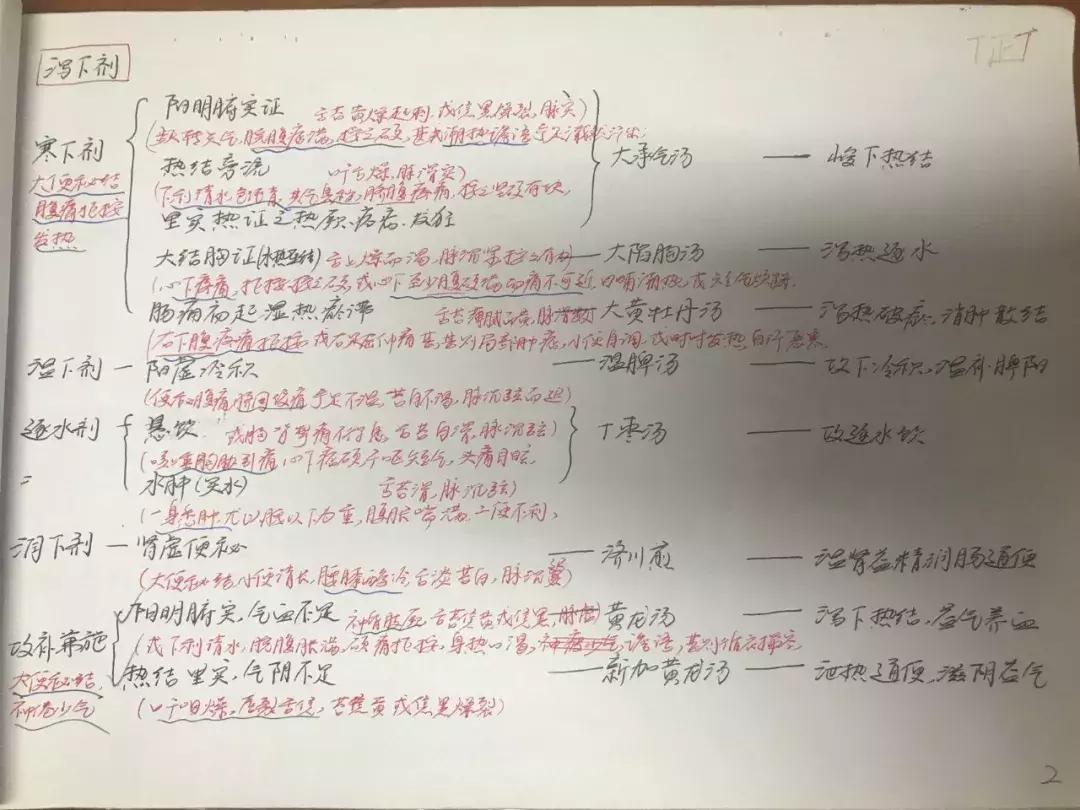 泻下剂
阳明腑实证 舌苔黄燥起刺,或焦黑燥裂,脉实)
寒下剂 (频转矢气,脘腹痞满,按之硬,甚或潮热谵语,手足濈然汗出;
大便秘结 热结旁流 口舌干燥,脉滑实) 大承气汤 —— 峻下热结
腹痛拒按 (下利清水,色纯青,其气臭秽,脐腹疼痛,按之坚硬有块,
发热 里实热证之热厥、痉病、发狂
大结胸证(水热互结) 舌上燥而渴,脉沉紧按之有力 —— 大陷胸汤 —— 泻热逐水
(心下疼痛,拒按,按之硬,或心下至少腹硬满而痛不可近,日晡潮热,或短气烦躁.
肠痈初起湿热瘀滞 舌苔薄腻而黄,脉滑数 大黄牡丹汤 —— 泻热破瘀,消肿散结
(右下腹疼痛拒按,或右足屈伸痛甚,甚则局部肿痞,小便自调,或时时发热,自汗恶寒
温下剂 — 阳虚冷积 —— 温脾汤 —— 攻下冷积,温补脾阳
(便秘腹痛,脐周绞痛,手足不温,苔白不渴,脉沉弦而迟)
逐水剂 悬饮 或胸背掣痛不得息,舌苔白滑,脉沉弦) 十枣汤 —— 攻逐水饮
(咳唾胸胁引痛,心下痞硬,干呕短气,头痛目眩
水肿(实水) 舌苔滑,脉沉弦)
(一身悉肿,尤以腰以下为重,腹胀喘满,二便不利,
润下剂 — 肾虚便秘 —— 济川煎 —— 温肾益精,润肠通便
(大便秘结,小便清长,腰膝酸冷,舌淡苔白,脉沉
阳明腑实,气血不足 神倦肢厥,舌苔焦黄或焦黑,脉虚 黄龙汤 —— 泻下热结,益气养血
攻补兼施 (或下利清水,脘腹胀满,硬痛拒按,身热口渴,谵语,甚则循衣撮空
大便秘结, 热结里实,气阴不足 —— 新加黄龙汤 —— 泄热通便,滋阴益气
神倦少气 (口干咽燥,唇裂舌焦,苔焦黄或焦黑燥裂)
2